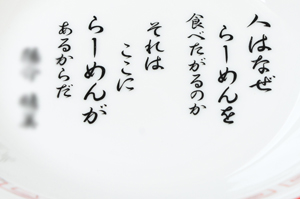 人はなぜ
らーめんを
食べたがるのか
それは
ここに
らーめんが
あるからだ